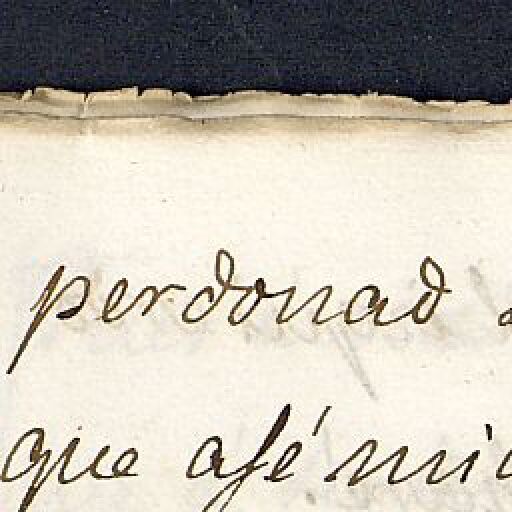 perdonad
que afé mi